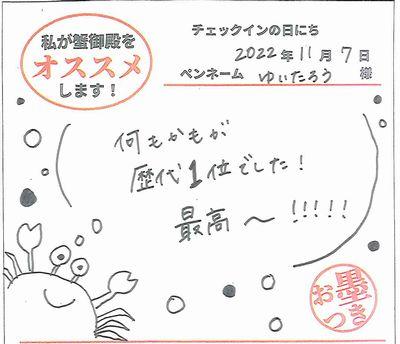 私が蟹御殿を
オススメ
します！
チェックインの日にち
2022年11月7日
ペンネーム ゆいたろう 様
何もかもが
歴代1位でした！
最高〜!!!!!
お墨つき